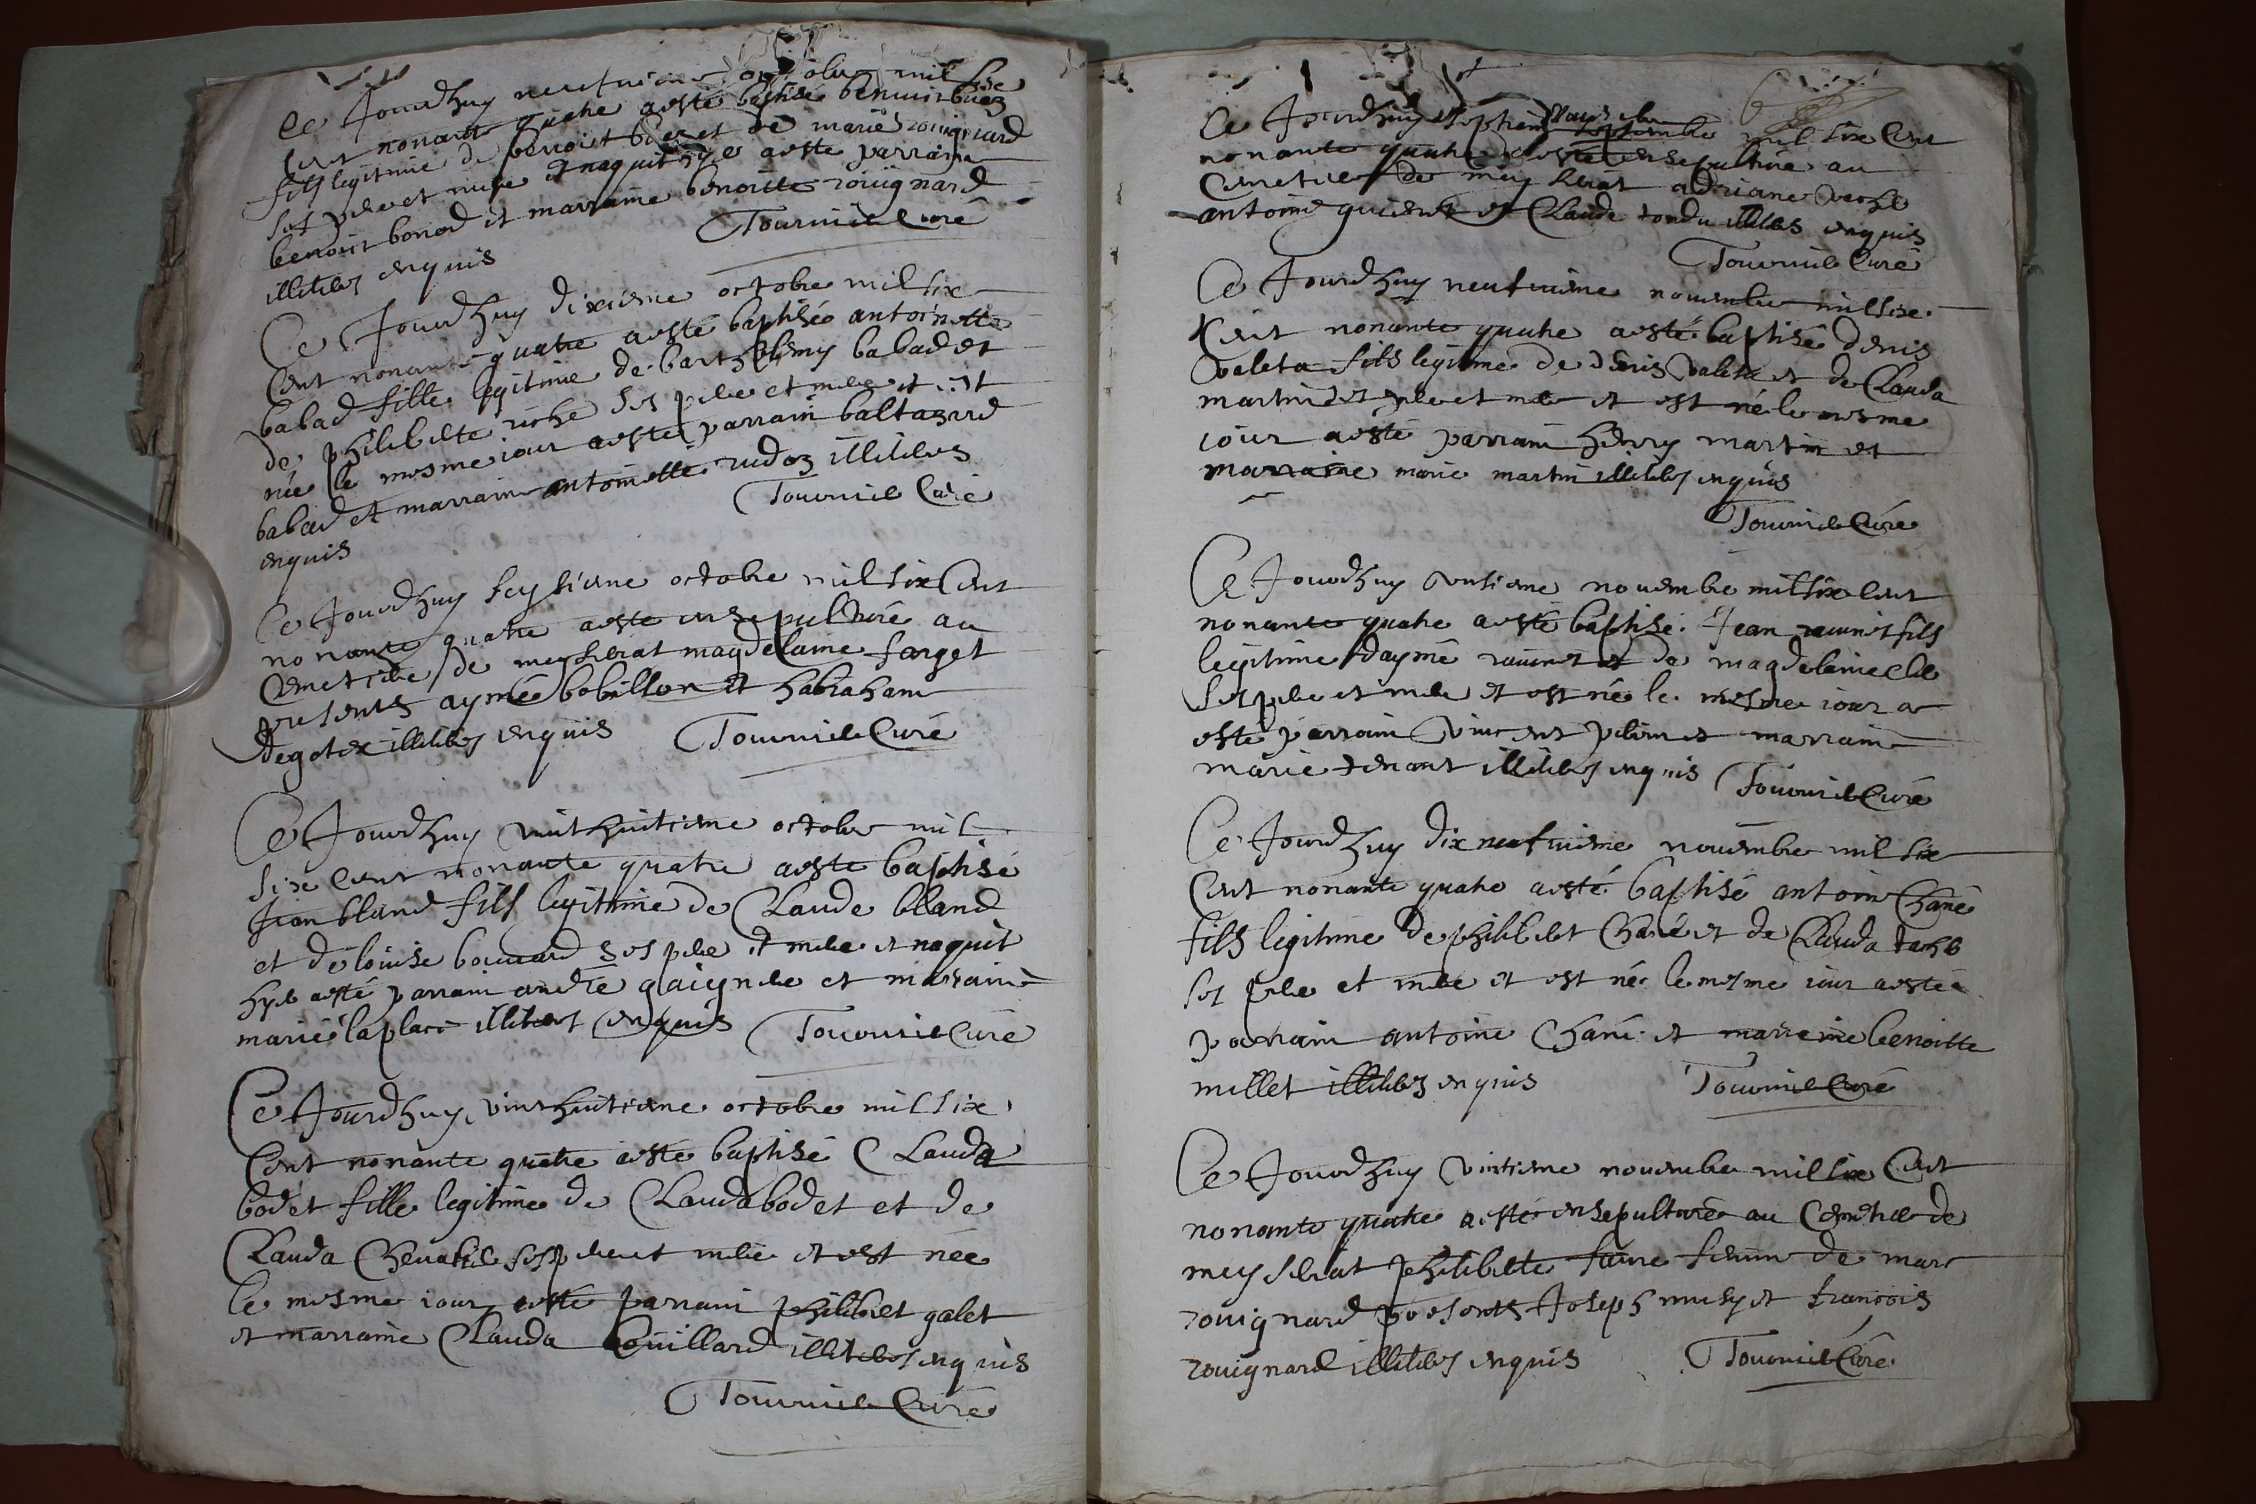 Ce Jourdhuy neufuieme octobre mil sixe
Cent nonante quatre a esté baptisé benoist buez
fils legitime de benoist buez et de marie rouignard
ses pere et mere et naquit hyer a esté parrain
benoist bonod et marraine benoitte rouignard
illiteres enquis Tournier Curé
Ce Jourdhuy dixieme octobre mil six
Cent nonante quatre a esté baptisée antoinette
babad fille legitime de barthelemy babad et
de philiberte riche ses pere et mere et est
née le mesme iour a esté parrain baltazard
babad et marraine antoinette rudoz illiteres
enquis Tournier Curé
Ce Jourdhuy seysieme octobre mil six Cent
nonante quatre a esté ensepulturé au
Cemetiere de meyseriat magdelaine forget
presents aymé bobillon et habraham
degotex illiteres enquis Tournier Curé
Ce Jourdhuy vint huitieme octobre mil
sixe Cent nonante quatre a esté baptisé
Jean bland fils legitime de Claude bland
et de louise bouuard ses pere et mere et naquit
hyer a esté parrain andré gaignere et marraine
marie laplace illiteres enquis Tournier Curé
Ce Jourdhuy vint huitieme octobre mil sixe
Cent nonante quatre a esté baptisé Clauda
bodet fille legitime de Clauda bodet et de
Clauda Cheuatier ses pere et mere et est née
le mesme iour a esté parrain philibert galet
et marraine Clauda Couillard illiteres enquis
Tournier Curé
Ce Jourdhuy septieme nouembre mil six Cent
nonante quatre a esté ensepulturé au
Cemetiere de meyseriat adriane
antoine et Claude tondu illiteres enquis
Tournier Curé
Ce Jourdhuy neufuieme nouembre mil sixe
Cent nonante quatre a esté baptisé denis
valeta fils legitime de denis valeta et de Clauda
martin ses pere et mere et est né le mesme
iour a esté parrain henry martin et
marraine marie martin illiteres enquis
Tournier Curé
Ce Jourdhuy unsieme nouembre mil sixe Cent
nonante quatre a esté baptisé Jean rauinet fils
legitime daymé rauinet et de magdeleine
ses pere et mere et est né le mesme iour a
esté parrain vincent et marraine
marie tenant illiteres enquis Tournier Curé
Ce Jourdhuy dix neufuieme nouembre mil six
Cent nonante quatre a esté baptisé antoine Chané
fils legitime de philibert Chané et de Clauda
ses pere et mere et est né le mesme iour a esté
parrain antoine Chané et marraine benoitte
millet illiteres enquis Tournier Curé
Ce Jourdhuy vintieme nouembre mil sixe Cent
nonante quatre a esté ensepulturée au Cemetiere de
meyseriat philiberte faure femme de marc
rouignard presents Joseph musy et francois
rouignard illiteres enquis Tournier Curé